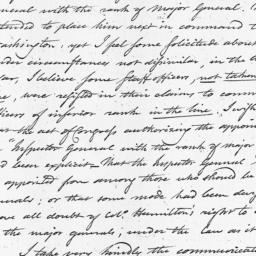 neral with the rank of Major General.
tended to place him next in command t
ashington: yet I feel some solicitude about
nder circumstances not dissimilar, in the
ar, I believe some staff officers, not taken
e, were resisted in their claims to comm
fficers of inferior rank in the line. I wish
at the act of Congress authorizing the appoin
Inspector General with the rank of major
d been explicit - that the Inspector General
appointed from among those who should be
nerals; or that some mode had been dev
ove all doubt of Col. Hamilton's right to
the major generals; under the law as it
I take very kindly the communicati